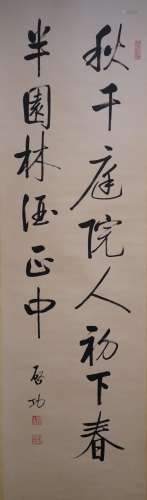 秋千庭院人初下春
半園林酒正中
啓功